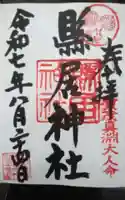 奉拝
賀茂真淵大人命
縣居神社
令和七年八月二十四日